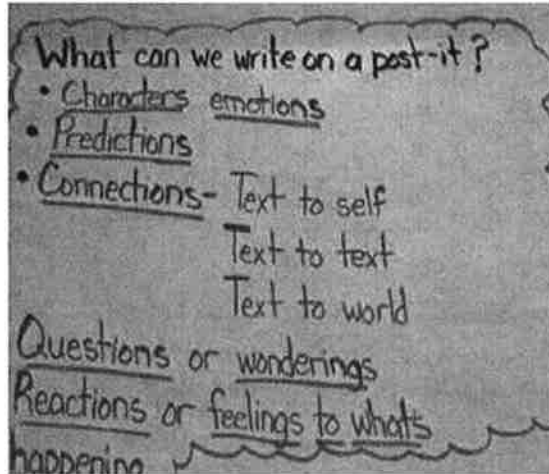 What can we write on a post-it?
• Characters emotions
• Predictions
• Connections- Text to self
Text to text
Text to world
Questions or wonderings
Reactions or feelings to whats
happening